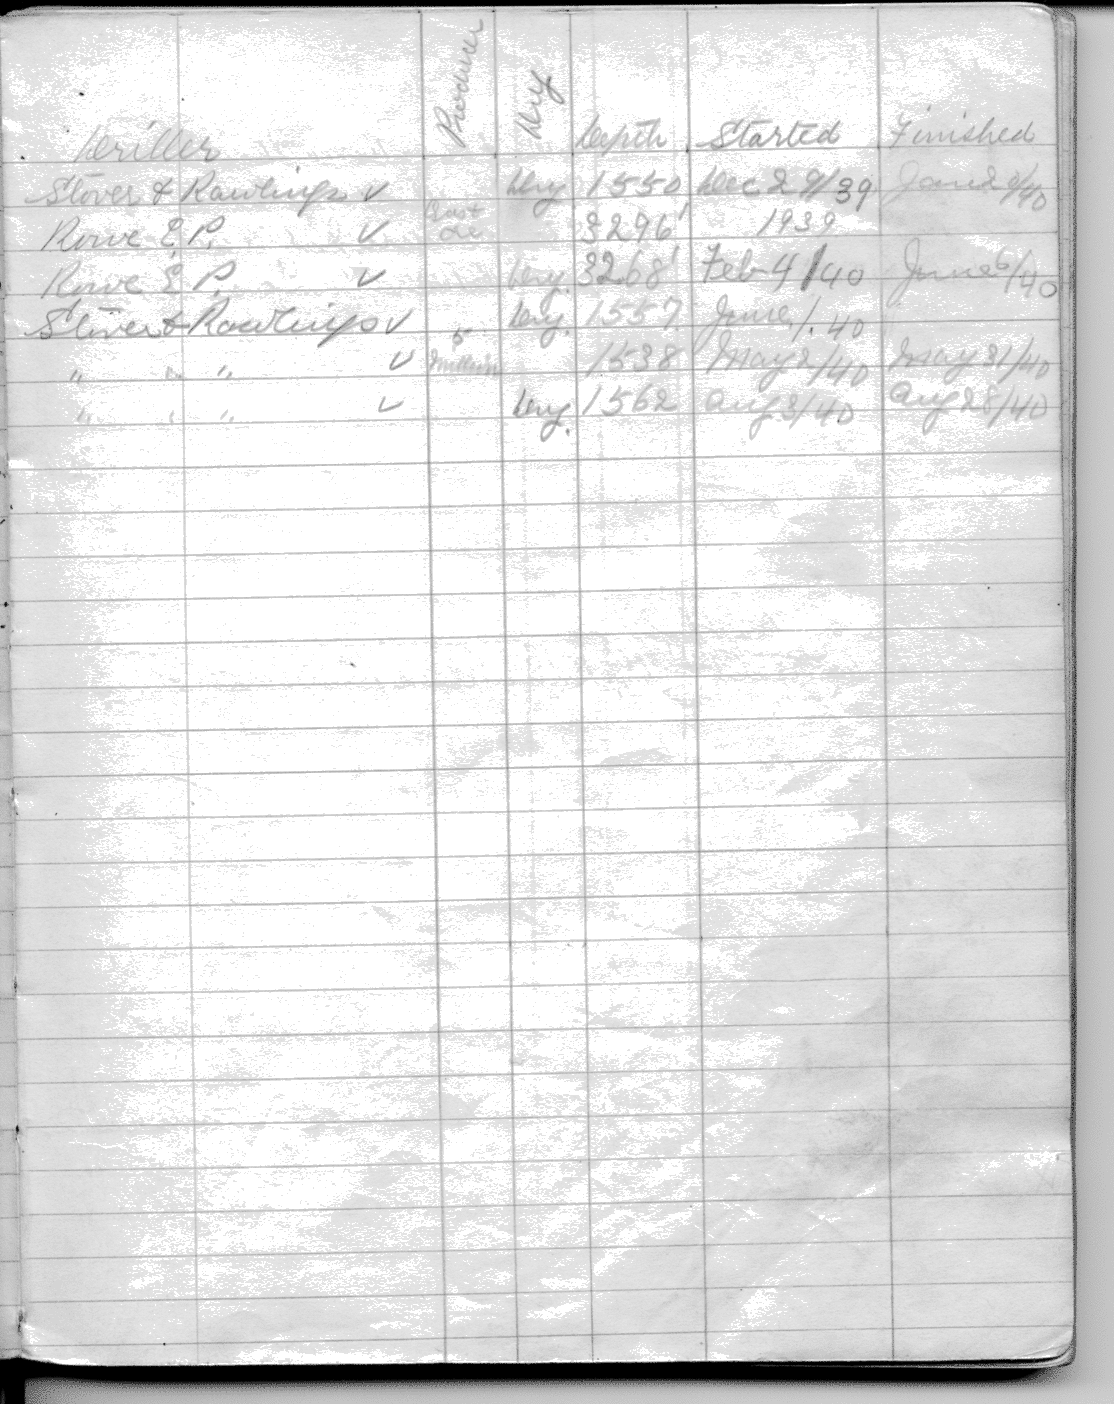 Driller Producer Dry Depth Started Finished
Stover & Rawlings ✓ Dry 1550 Dec 29/39 Jan 29/40
Rowe E.P. ✓ 3296' 1939
Rowe E.P. ✓ Dry. 3268' Feb 4/40 June 6/40
Stover & Rawlings ✓ Dry. 1557 June 1/40
" " " ✓ 5 million 1538 May 2/40 May 31/40
" " " ✓ Dry. 1562 Aug 3/40 Aug 28/40